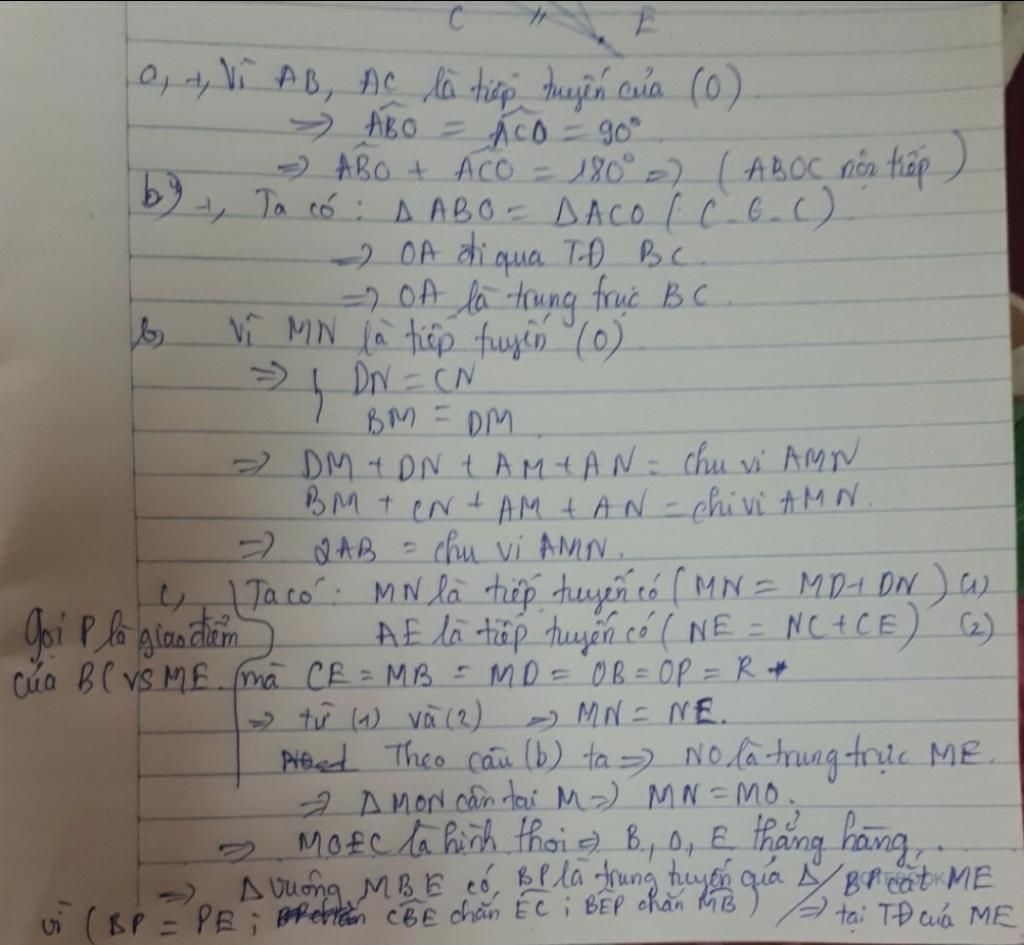 C E
a, +, Vì AB, AC là tiếp tuyến của (O).
=> ABO = ACO = 90°
=> ABO + ACO = 180° => (ABOC nội tiếp)
b) +, Ta có: Δ ABO = ΔACO (C-G-C)
=> OA đi qua TĐ BC.
=> OA là trung trực BC.
b, Vì MN là tiếp tuyến (O).
=> { DN = CN
BM = DM
=> DM + DN + AM + AN = chu vi AMN
BM + CN + AM + AN = chi vi AMN.
=> 2AB = chu vi AMN.
c, Ta có: MN là tiếp tuyến có (MN = MD + DN) (1)
Gọi P là giao điểm
AE là tiếp tuyến có (NE = NC + CE) (2)
của BC vs ME.
mà CE = MB = MD = OB = OP = R
=> từ (1) và (2) => MN = NE.
Theo câu (b) ta => NO là trung trực ME.
=> Δ MON cân tại M => MN = MO.
=> MOEC là hình thoi => B, O, E thẳng hàng.
=> Δ vuông MBE có, BP là trung tuyến của Δ / BP cắt ME
vì (BP = PE ; CBE chắn EC ; BEP chắn MB) / => tại TĐ của ME